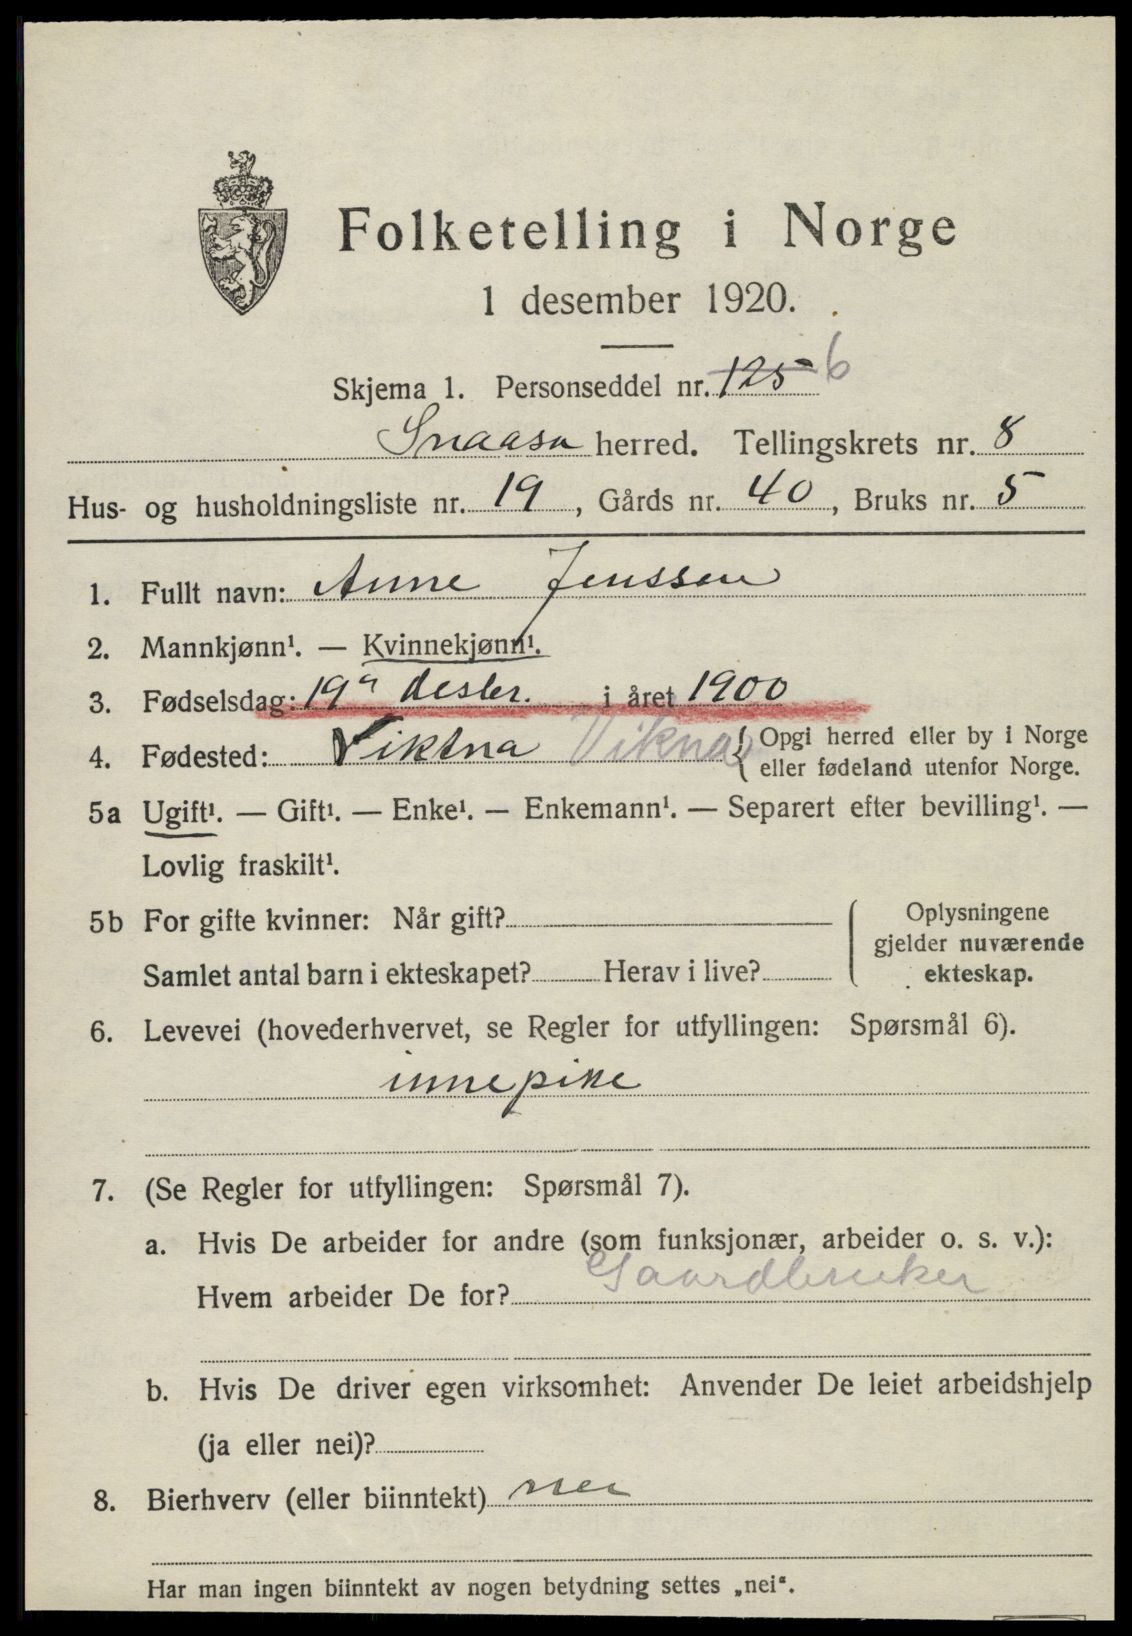 Folketelling i Norge
1 desember 1920.
Skjema 1. Personseddel nr. 125 6
Snaasa herred. Tellingskrets nr. 8
Hus- og husholdningsliste nr. 19, Gårds nr. 40, Bruks nr. 5
1. Fullt navn: Anne Jenssen
2. Mannkjønn¹. — Kvinnekjønn¹.
3. Fødselsdag: 19de desbr. i året 1900
4. Fødested: Viktna Vikna { Opgi herred eller by i Norge
eller fødeland utenfor Norge.
5a Ugift¹. — Gift¹. — Enke¹. — Enkemann¹. — Separert efter bevilling¹. —
Lovlig fraskilt¹.
5b For gifte kvinner: Når gift?
Samlet antal barn i ekteskapet? Herav i live?
{ Oplysningene
gjelder nuværende
ekteskap.
6. Levevei (hovederhvervet, se Regler for utfyllingen: Spørsmål 6).
innepike
7. (Se Regler for utfyllingen: Spørsmål 7).
a. Hvis De arbeider for andre (som funksjonær, arbeider o. s. v.):
Hvem arbeider De for? Gaardbruker
b. Hvis De driver egen virksomhet: Anvender De leiet arbeidshjelp
(ja eller nei)?
8. Bierhverv (eller biinntekt) nei
Har man ingen biinntekt av nogen betydning settes „nei“.